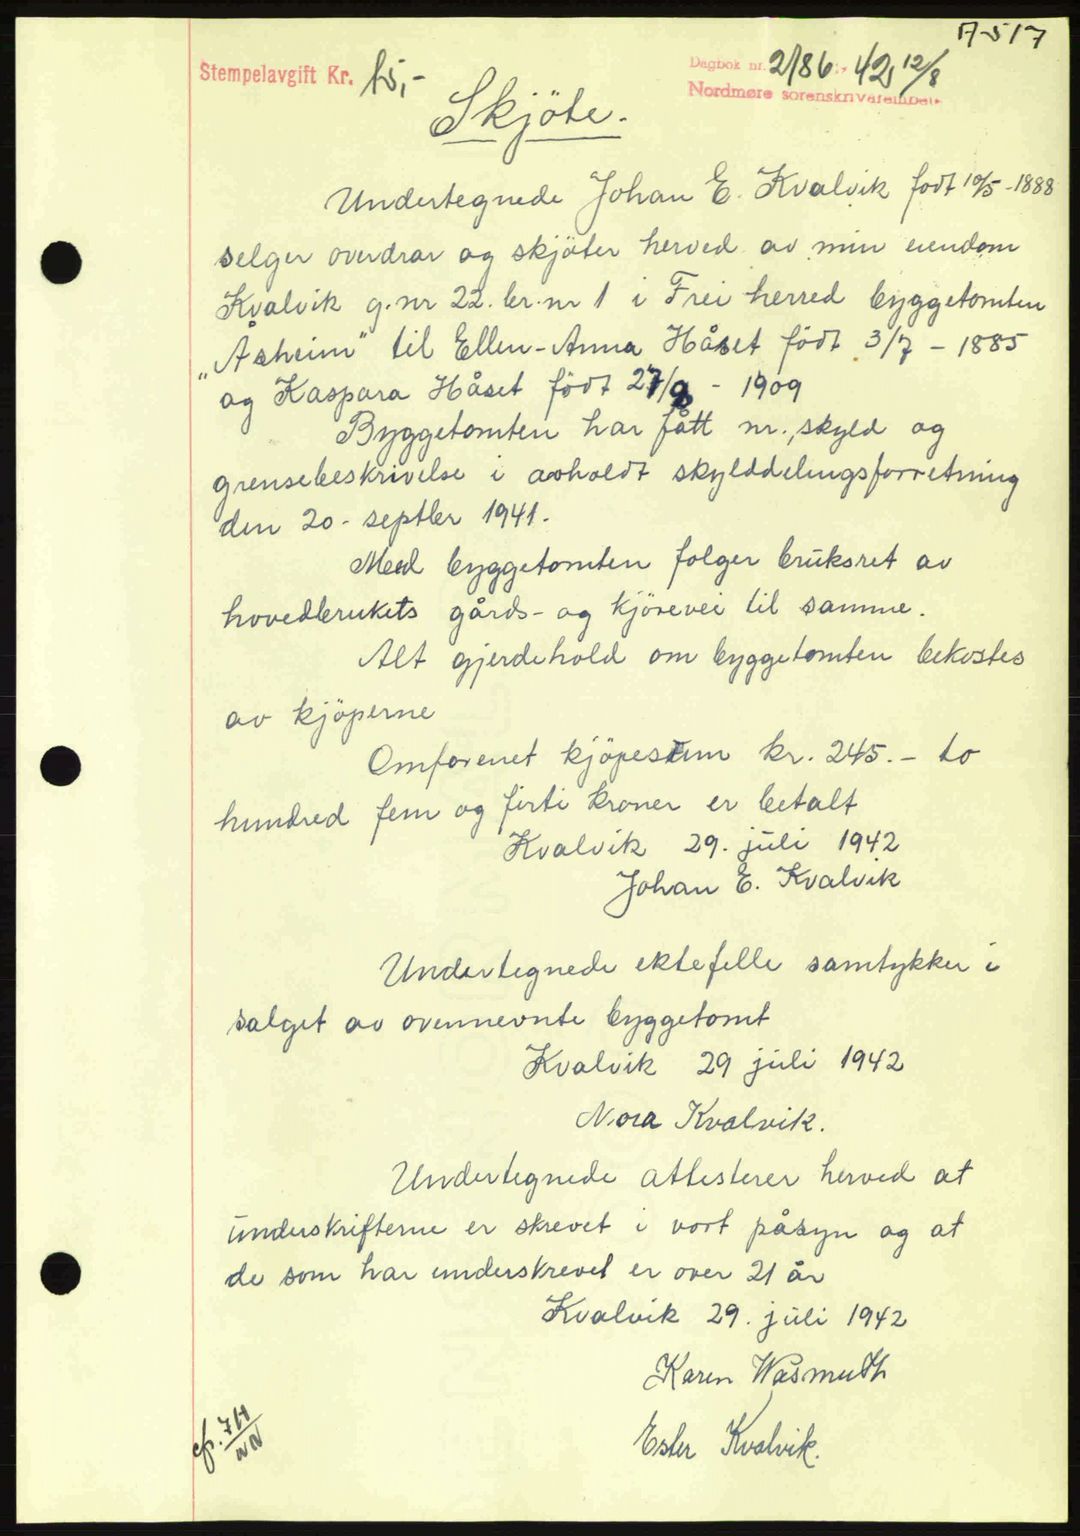 A-517
Stempelavgift Kr. 15,-
Dagbok nr. 2186 - 42, 12/8
Nordmøre sorenskriverembete
Skjöte.
Undertegnede Johan E. Kvalvik født 10/5-1888
selger overdrar og skjöter herved av min eiendom
Kvalvik g.nr 22. br.nr 1 i Frei herred byggetomten
„Åsheim" til Ellen-Anna Håset født 3/7 - 1885
og Kaspara Håset født 27/9 - 1909
Byggetomten har fått nr., skyld og
grensebeskrivelse i avholdt skylddelingsforretning
den 20. septber 1941.
Med byggetomten følger bruksret av
hovedbrukets gårds- og kjörevei til samme.
Alt gjerdehold om byggetomten bekostes
av kjöperne
Omforenet kjöpesum kr. 245.- to
hundred fem og firti kroner er betalt
Kvalvik 29. juli 1942
Johan E. Kvalvik
Undertegnede ektefelle samtykker i
salget av ovennevnte byggetomt
Kvalvik 29 juli 1942
Nora Kvalvik.
Undertegnede attesterer herved at
underskrifterne er skrevet i vort påsyn og at
de som har underskrevet er over 21 år
Kvalvik 29. juli 1942
Karen Wasmuth
Ester Kvalvik.